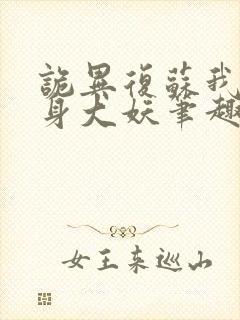 詭異復蘇我
身犬妖筆趣
女王來巡山